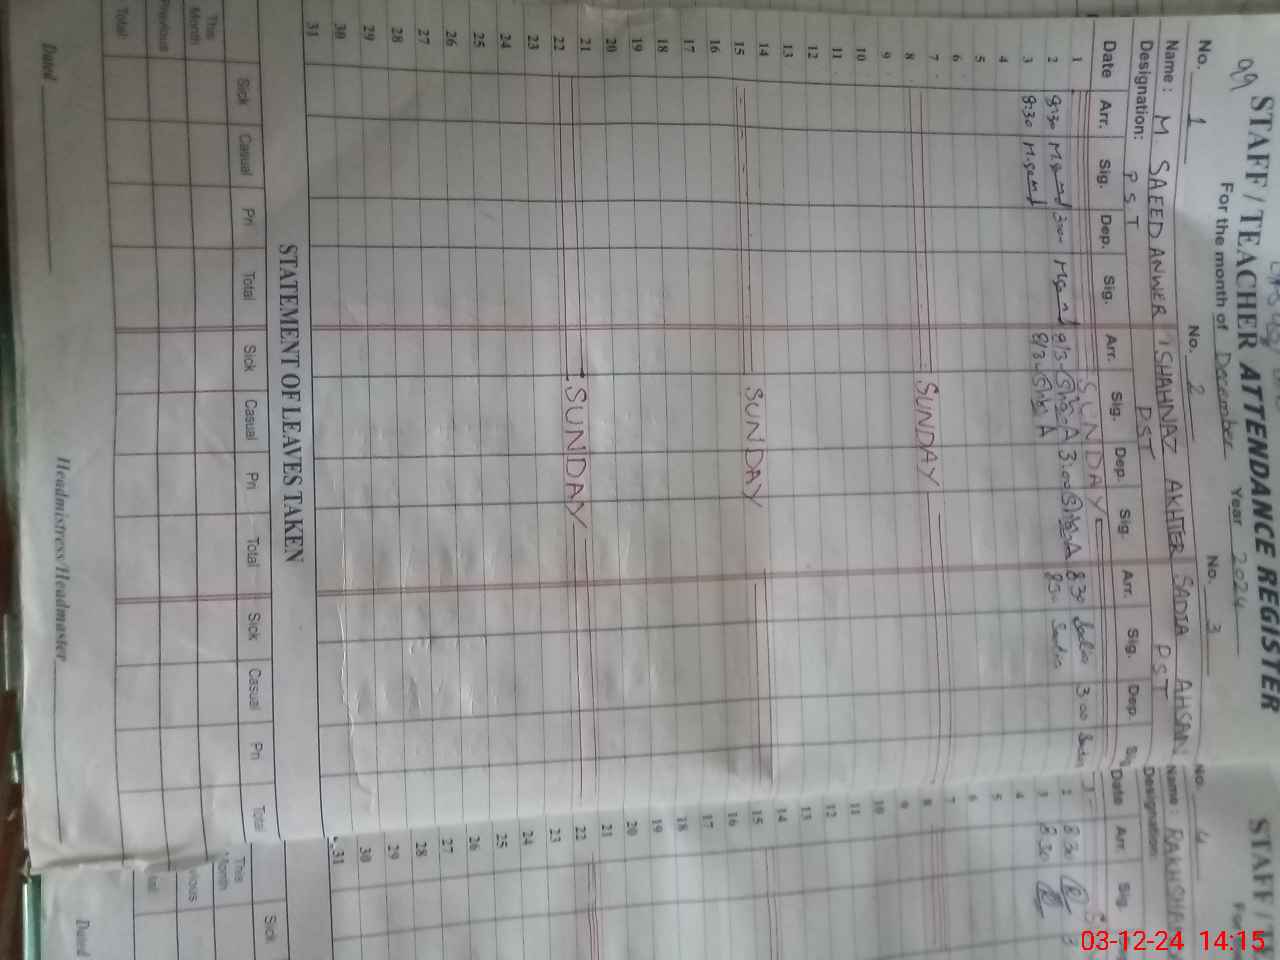 99 STAFF / TEACHER ATTENDANCE REGISTER
For the month of December Year 2024
No. 1 No. 2 No. 3
Name: M SAEED ANWER SHAHNAZ AKHTER SADIA AHSAN
Designation: P S T PST PST
Date Arr. Sig. Dep. Sig. Arr. Sig. Dep. Sig. Arr. Sig. Dep.
1 SUNDAY
2 8:30 3:00 3:00 830 Sadia 3:00
3 8:30 830 Sadia
4
5
6
7
8 SUNDAY
9
10
11
12
13
14
15 SUNDAY
16
17
18
19
20
21
22 SUNDAY
23
24
25
26
27
28
29
30
31
STATEMENT OF LEAVES TAKEN
Sick Casual Pri Total Sick Casual Pri Total Sick Casual Pri Total
This Month
Previous
Total
Dated Headmistress/Headmaster
STAFF / TE
No. 4
Name:
Designation:
Date Arr. Sig.
1 S
2 830
3 830
4
5
6
7
8
9
10
11
12
13
14
15
16
17
18
19
20
21
22
23
24
25
26
27
28
29
30
31
Sick
This Month
Dated
03-12-24 14:15